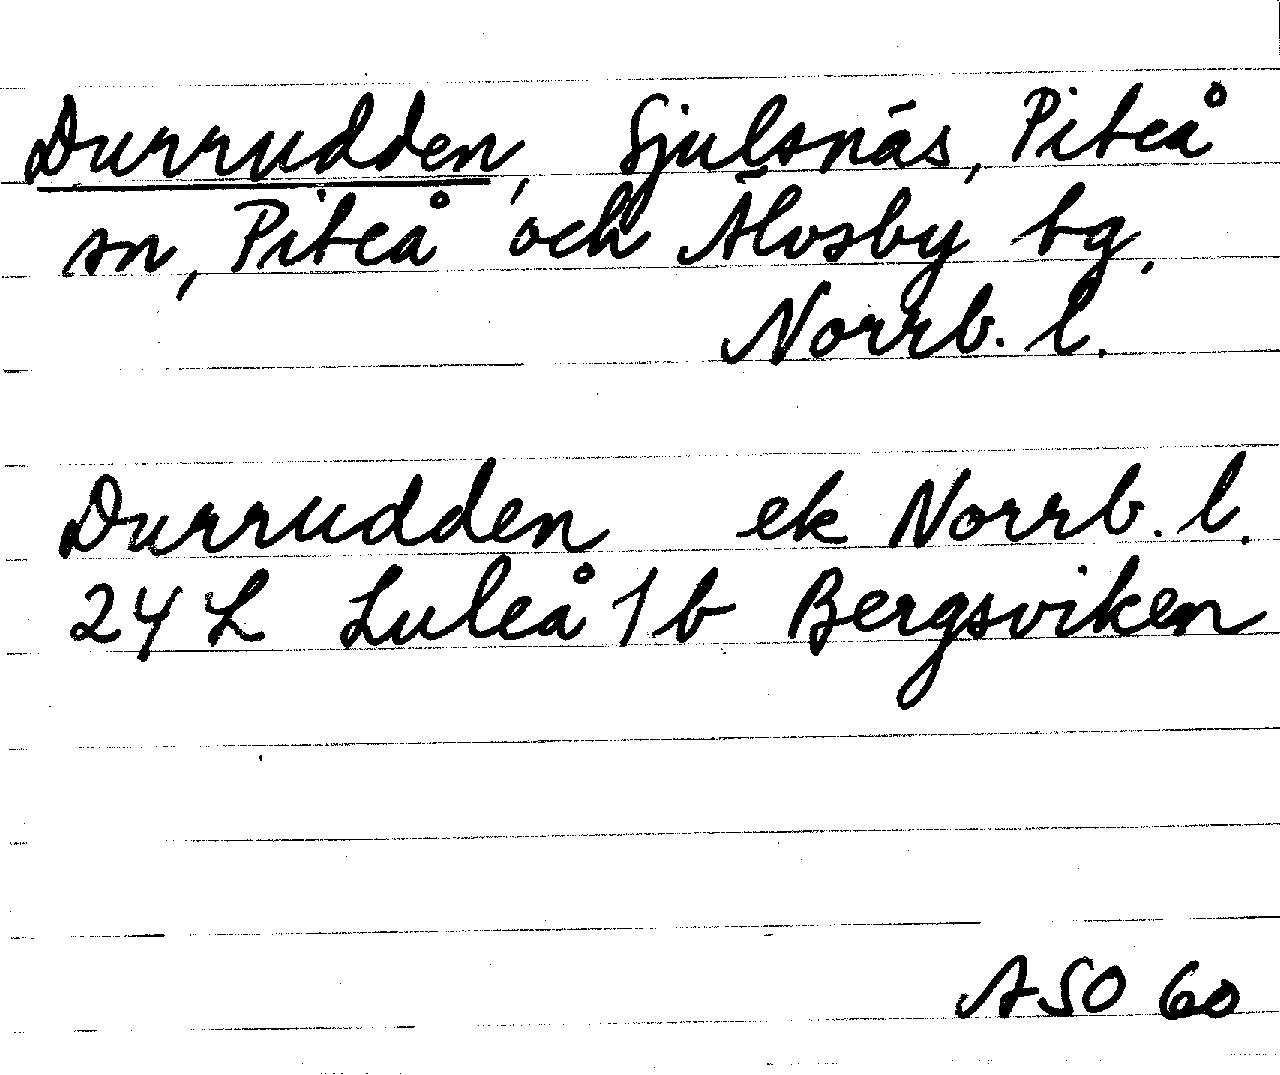 Durrudden, Sjulsnäs, Piteå
sn, Piteå och Älvsby tg.
Norrb. l.
Durrudden ek Norrb. l.
24 L Luleå 1 b Bergsviken
ASO 60